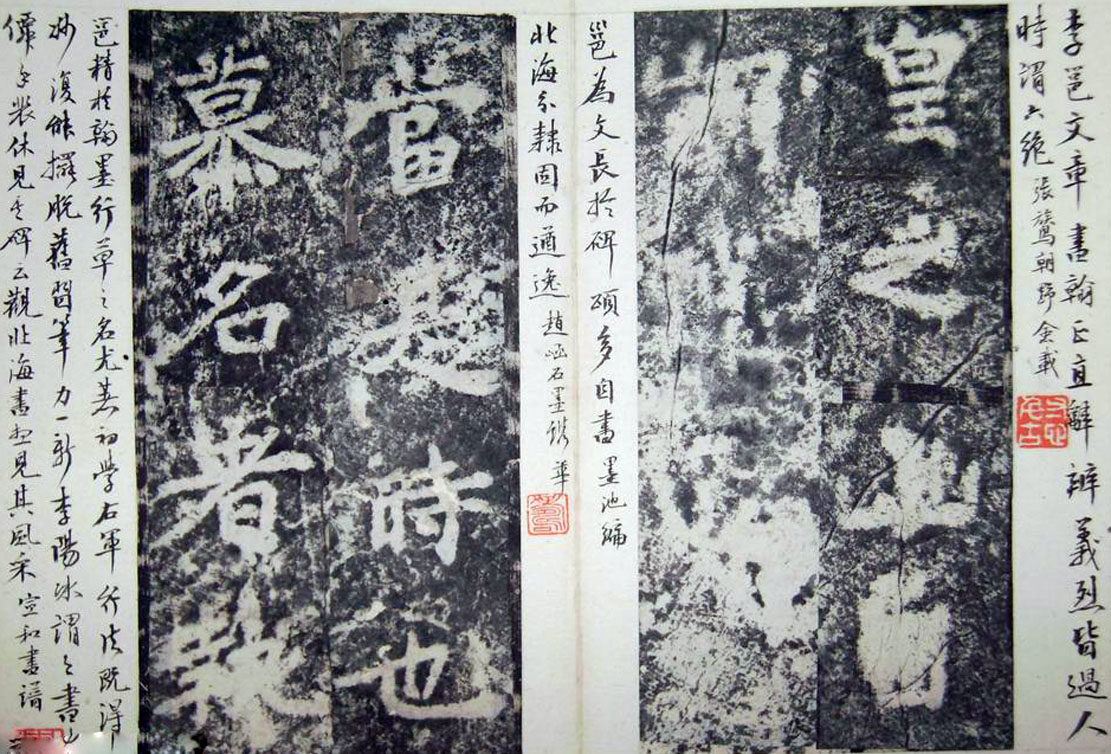 李邕文章書翰正直辭辯義烈皆過人
時謂六絕 張鷟朝野僉載
皇之
邕為文長於碑頌多自書 墨池編
北海分隸固而遒逸 趙崡石墨鐫華
當是時也
慕名者執
邕精於翰墨行草之名尤著初學右軍行法既得
妙復能擺脫舊習筆力一新李陽冰謂之書中仙
手裴休見其碑云觀北海書想見其風采 宣和書譜